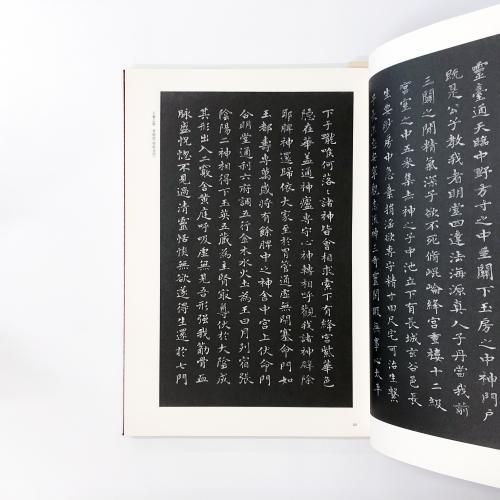 靈臺通天臨中野方寸之中至關下玉房之中神門戶
既是公子教我者明堂四達法海源真人子丹當我前
三關之間精氣深子欲不死脩崐崘絳宮重樓十二級
宮室之中五采集赤神之子中池立下有長城玄谷邑長
生要眇房中急棄捐淫欲專守精寸田尺宅可治生繫
觀志流神三奇靈閒暇無事心太平
下于嚨喉何落落諸神皆會相求索下有絳宮紫華色
隱在華蓋通神廬專守心神轉相呼觀我諸神辟除
耶脾神還歸依大家至於胃管通虛無閉塞命門如
玉都壽專萬歲將有餘脾中之神舍中宮上伏命門
合明堂通利六府調五行金木水火土為王日月列宿張
陰陽二神相得下玉英五藏為主腎最尊伏於大陰成
其形出入二竅舍黃庭呼吸虛無見吾形強我筋骨血
脉盛怳惚不見過清靈恬惔無欲遂得生還於七門